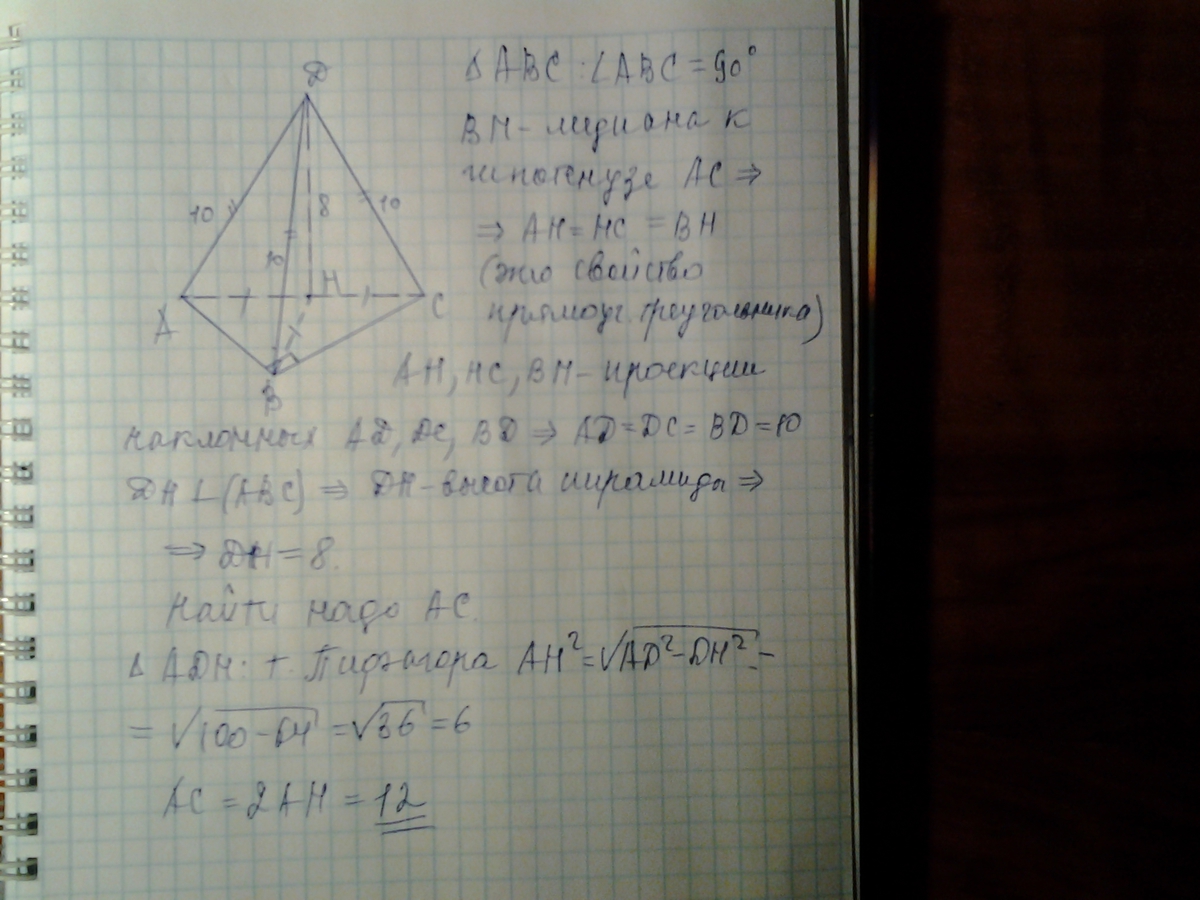 D
10
8
10
10
H
A
C
B
Δ ABC : ∠ABC = 90°
BH - медиана к
гипотенузе AC ⇒
⇒ AH = HC = BH
(это свойство
прямоуг. треугольника)
AH, HC, BH - проекции
наклонных AD, DC, BD ⇒ AD = DC = BD = 10
DH ⊥ (ABC) ⇒ DH - высота пирамиды ⇒
⇒ DH = 8.
Найти надо AC.
Δ ADH: т. Пифагора AH² = √AD² - DH² =
= √100 - 64 = √36 = 6
AC = 2AH = 12